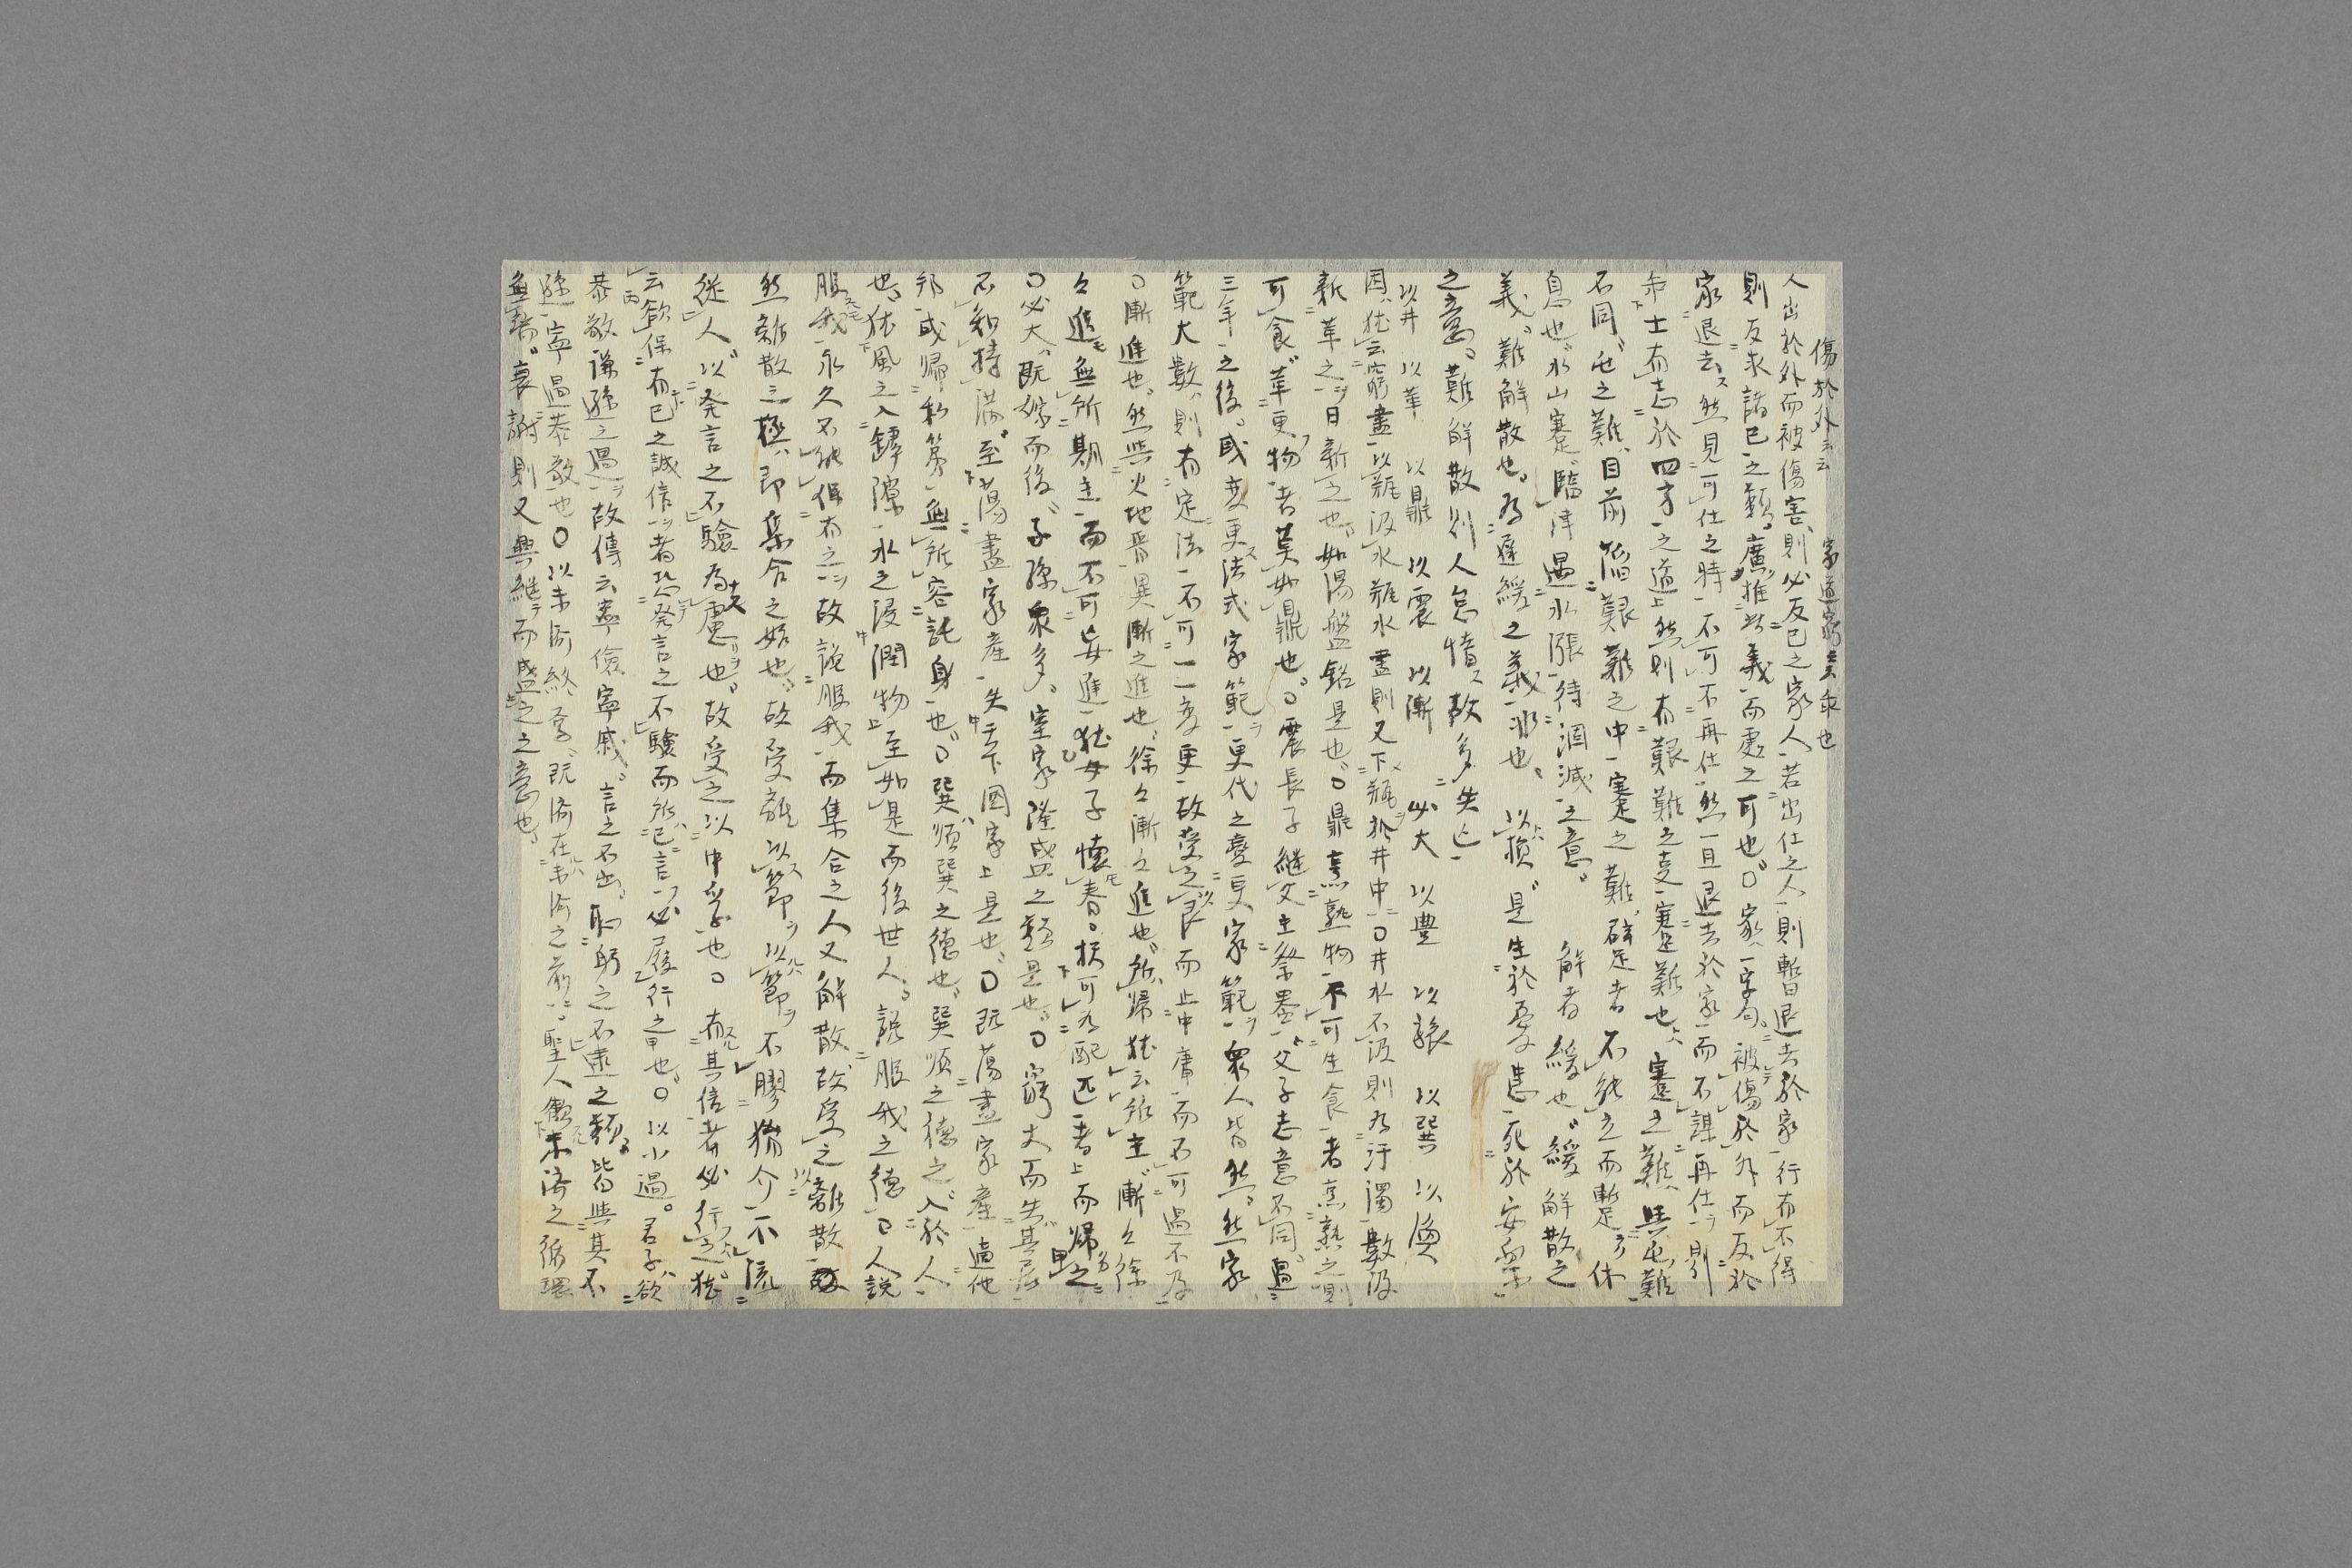 傷於外云云　家道窮云云乖也
人出於外而被傷害則必反己之家人若出仕之人則暫退去於家行有不得
則反求諸己之類廣推此義而處之可也〇家一字句被傷於外而反於
家退去然見可仕之時不可不再仕然一旦退去於家而不謀再仕則
士有志於四方之道上然則有艱難之蹇難也蹇之難與屯難
不同屯之難目前陷艱難之中蹇之難躄足者不能立而暫足休
息也水山蹇臨津遇水漲待涸減之意　解者緩也緩解散之
義難解散也為遲緩之義非也　以損是生於憂患死於安樂
之意難解散則人怠惰故多失亡
以井　以革　以鼎　以震　以漸　必大　以豊　以旅　以巽　以渙
困猶云窮盡以瓶汲水瓶水盡則又下瓶於井中〇井水不汲則為汙濁數汲
新革之日新之也如湯盤銘是也〇鼎烹熟物不可生食者烹熟之則
可食革更物者莫如鼎也〇震長子継父主祭器父子志意不同過
三年之後或変更法式家範更代之変更家範衆人皆然然家
範大數則有定法不可一一変更故受之以艮而止中庸而不可過不及
〇漸進也然與火地晋異漸之進也徐々漸々進也所帰猶云依主漸々徐
々進無所期主而不可妄進猶女子懐春択可為配匹者上而帰之
〇必大既嫁而後子孫衆多室家隆盛之類是也〇窮大而失其居
不知持満至蕩盡家産失天下國家上是也〇既蕩盡家産適他
邦或帰私第無所容託身也〇巽順巽之德也巽順之德之入於人
也猶風之入罅隙水之浸潤物上至如是而後世人説服我之德〇人説
服我永久不能保有之故説服我而集合之人又解散故受之以離散故
然離散之極即集合之始也故受離以節以節不膠猶介不流
從人以発言之不驗為慮也故受之以中孚也〇有其信者必行之猶
云欲保有己之誠信者恐発言之不驗而所己言必履行之也〇以小過君子欲
恭敬謙遜之過故傳云喪儉寧戚言之不出恥躬之不逮之類皆與其不
遜寧過恭敬也〇以未濟終焉既濟在未濟之前聖人未濟之循環
無端衰謝則又興継而盛之之意也